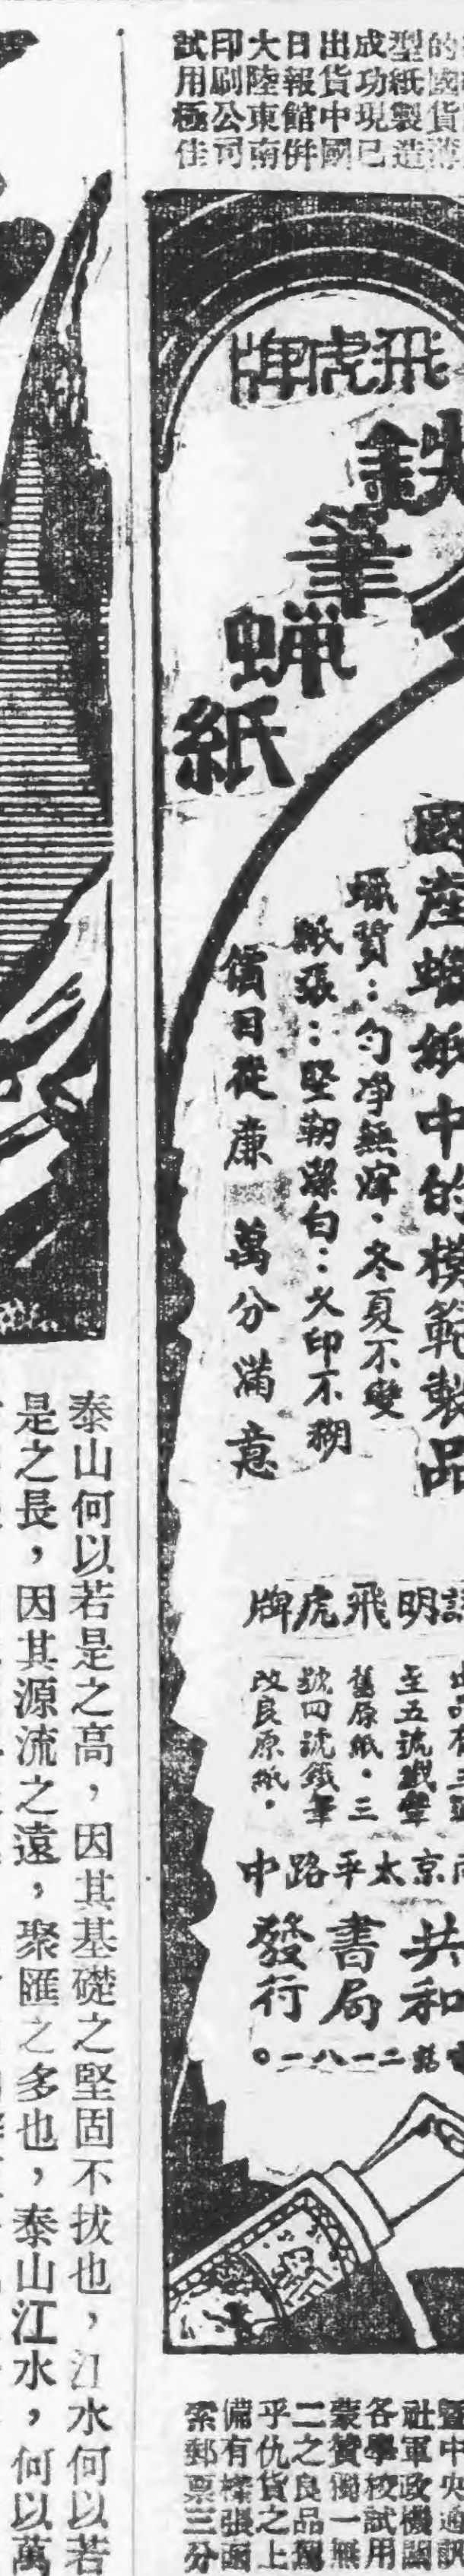 的國貨薄
型紙製造
成功現已
出貨中國
日報館併
大陸東南
印刷公司
試用極佳
飛虎牌
鉄筆蠟紙
國產蠟紙中的模範製品
蠟質：勻净無滓．冬夏不變
紙張：堅韌潔白：久印不糊
價目從廉 萬分滿意
明飛虎牌
至五號鐵筆
舊原紙．三
號四號鐵筆
改良原紙．
京太平路中
共和
書局
發行
二一八一〇
暨中央通訊
社軍政機關
各學校試用
蒙贊獨一無
二之良品駕
乎仇貨之上
備有樣張函
索郵票三分
泰山何以若是之高，因其基礎之堅固不拔也，江水何以若
是之長，因其源流之遠，聚匯之多也，泰山江水，何以萬